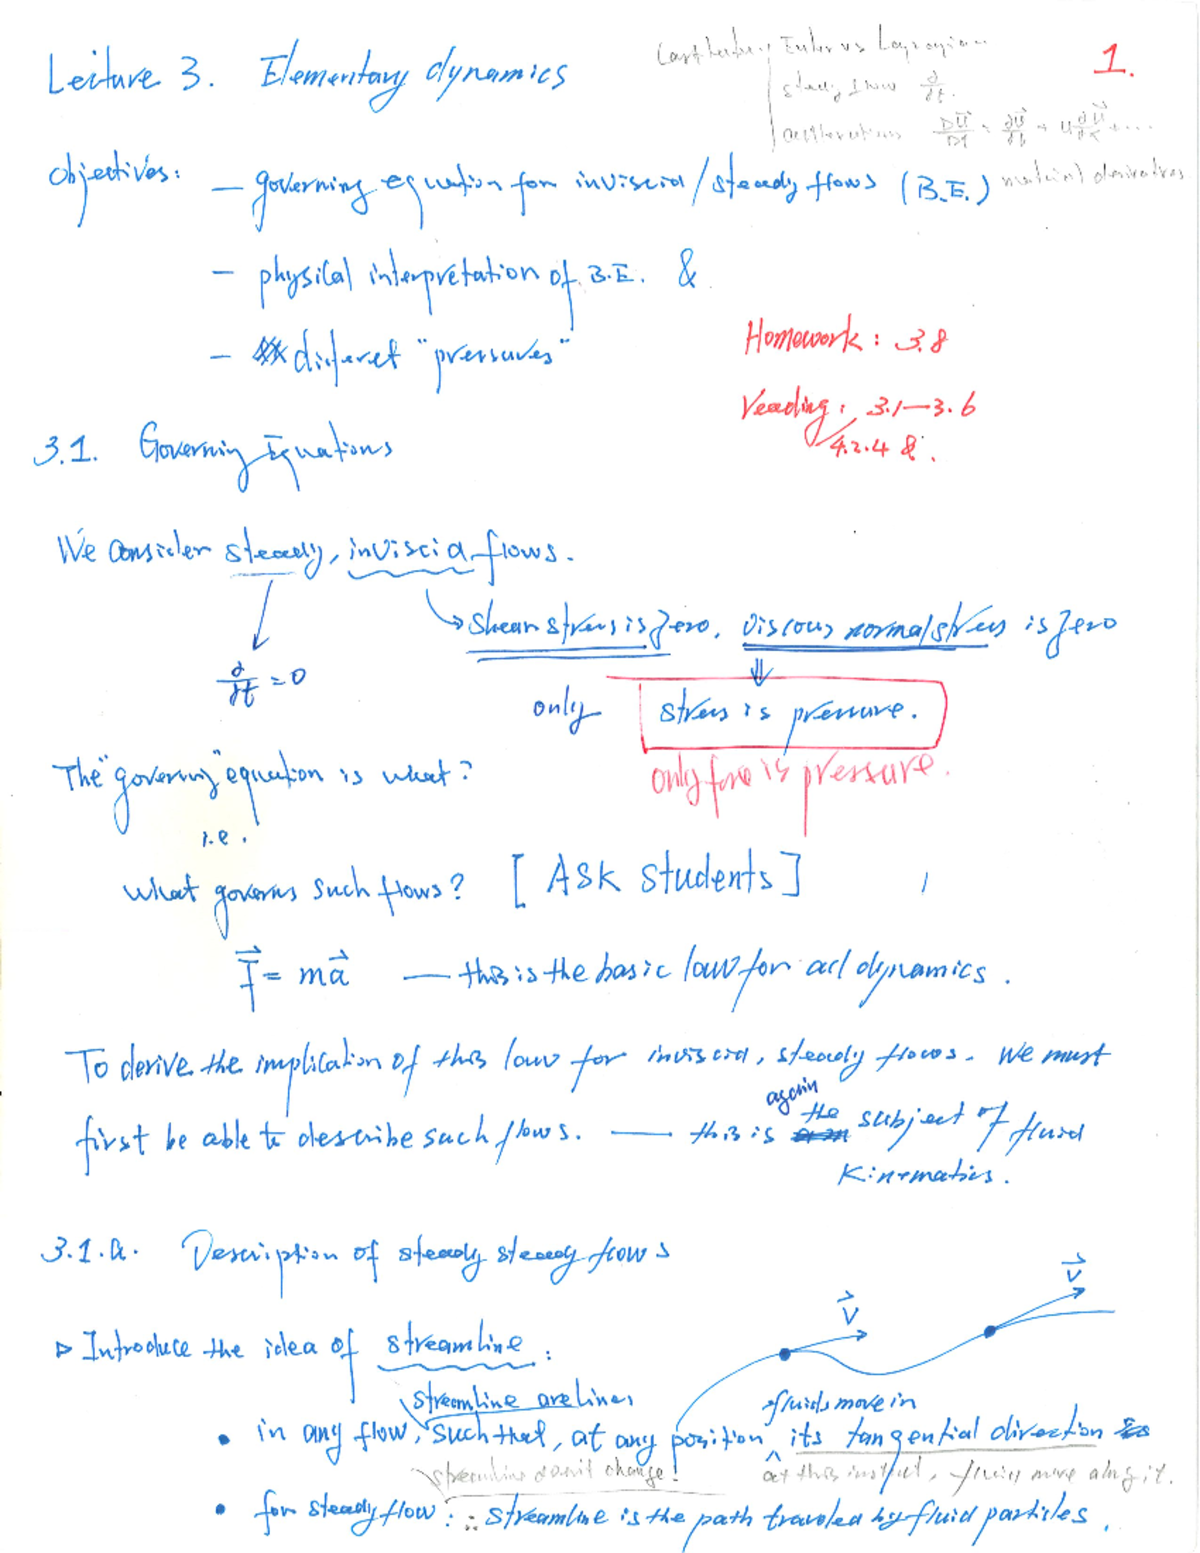 Lecture 3. Elementary dynamics
Last lecture Euler vs Lagrangian
steady flow ∂/∂t.
acceleration Du⃗/Dt = ∂u⃗/∂t + u∂u⃗/∂x + ...
material derivatives
1.
objectives: — governing equation for inviscid/steady flows (B.E.)
— physical interpretation of B.E. &
— differet "pressures"
Homework: 3.8
reading: 3.1—3.6
4.2.4 &.
3.1. Governing Equations
We consider steady, inviscid flows.
∂/∂t = 0
→ Shear stress is zero, viscous normal stress is zero
⇓
only stress is pressure.
only force is pressure.
The "governing" equation is what?
i.e.
what governs such flows? [ Ask students ]
F⃗ = ma⃗ — this is the basic law for all dynamics.
To derive the implication of this law for inviscid, steady flows. We must
first be able to describe such flows. — this is again the subject of fluid
kinematics.
3.1.a. Description of steady steady flows
V⃗ V⃗
▷ Introduce the idea of streamline:
streamline are lines
fluids move in
• in any flow, such that, at any position its tangential direction
streamline don't change! at this instant, fluid move along it.
• for steady flow: ∴ streamline is the path traveled by fluid particles.